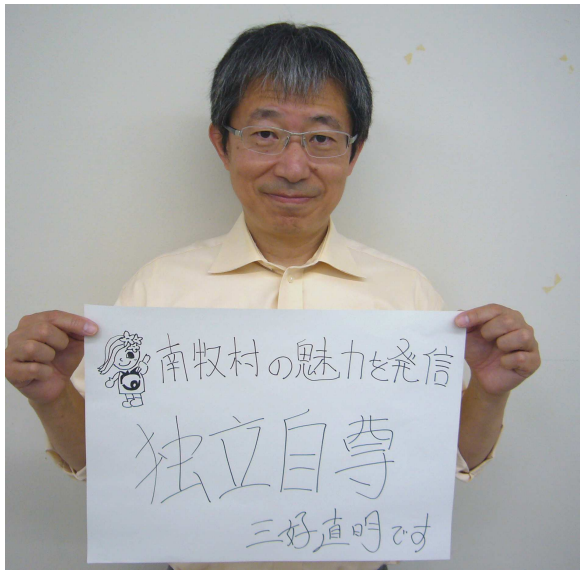 南牧村の魅力を発信
独立自尊
三好直明です